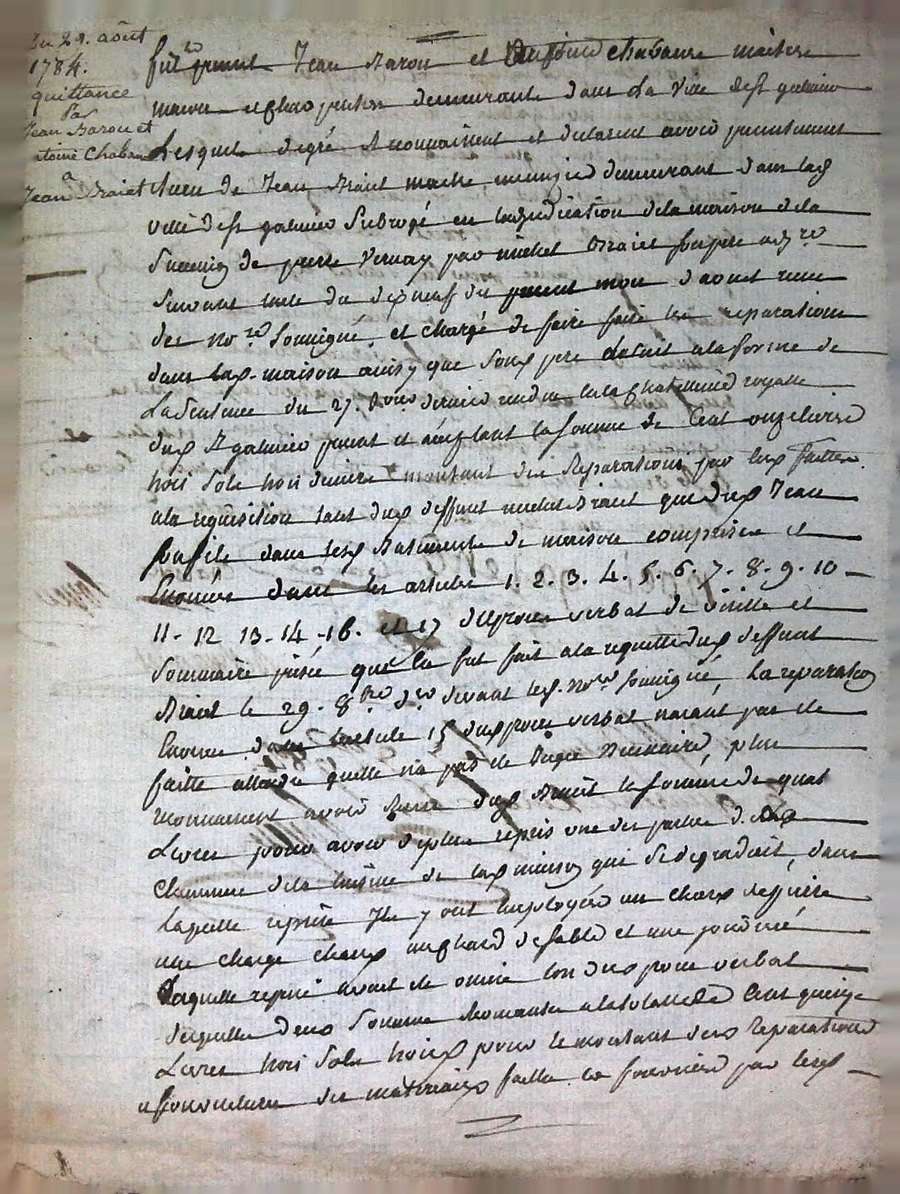 Du 29. août
1784.
quittance
par
Jean Barou et
antoine Chabanne
a
Jean Braiet
fut present Jean Barou et antoine chabanne maitre
macon et charpentier demeurants dans la ville de st galmier
Lesquels de gré reconnaissent et declarent avoir presentement
recu de Jean Braiet maitre demeurant dans lad
ville de st galmier subrogé en ladjudication de la maison de la
de pierre Vernay par michel Braiet son pere
suivant acte du dix neuf du present mois d'aoust recu
des no.res soussigné, et chargé de faire faire les reparations
dans lad. maison ainsy que sond pere debait a la forme de
La Sentence du 27. dernier rendue en la chatelenie royalle
dud St galmier present et acceptant la somme de Cent onze livres
trois sols trois deniers montant des reparations par eux faittes
a la requisition tant dud deffunt michel Braiet que dud Jean
son fils dans lesd Batiments de maison comprises et
Enoncés dans les articles 1. 2. 3. 4. 5. 6. 7. 8. 9. 10
11 - 12 13 - 14 - 16. et 17 du proces verbal de visitte et
sommaire prisée que en fut fait a la requette dud deffunt
Braiet le 29. 8bre d.er devant lesd. no.res soussigné, La reparation
Enoncée dans larticle 15 dud proces verbal nayant pas ete
faitte attendu quelle n'a pas ete Jugée necessaire, plus
reconnaissent avoir Recu dud Braiet la somme de quatre
Livres pour avoir de plus repris une des parties de la
cheminée de la cuisine de lad maison qui se degradait, dans
laquelle reprise Ils y ont employés un chard de pierre
une charge chaux un chard de sable et une journée
Laquelle reprise avait ete omise lors dud proces verbal
lesquelles deux sommes revenantes a la totale de Cent quinze
Livres trois sols trois d pour le montant desd reparations
et fournitures des materiaux faittes et fournies par lesd